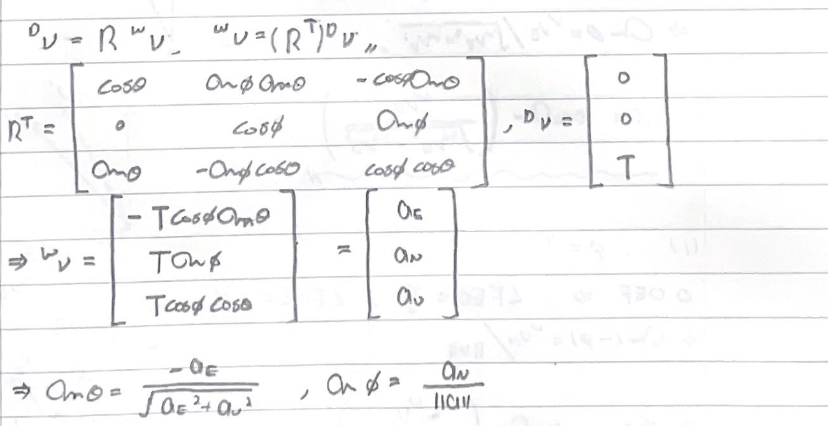 ᴰv = R ʷv, ʷv = (Rᵀ)ᴰv,,
Rᵀ = [ cosθ sinφ sinθ -cosφ sinθ ; 0 cosφ sinφ ; sinθ -sinφ cosθ cosφ cosθ ], ᴰv = [ 0 ; 0 ; T ]
⇒ ʷv = [ -Tcosφ sinθ ; T sinφ ; Tcosφ cosθ ] = [ a_E ; a_N ; a_U ]
⇒ sinθ = -a_E / √(a_E² + a_U²) , sin φ = a_N / ||a||